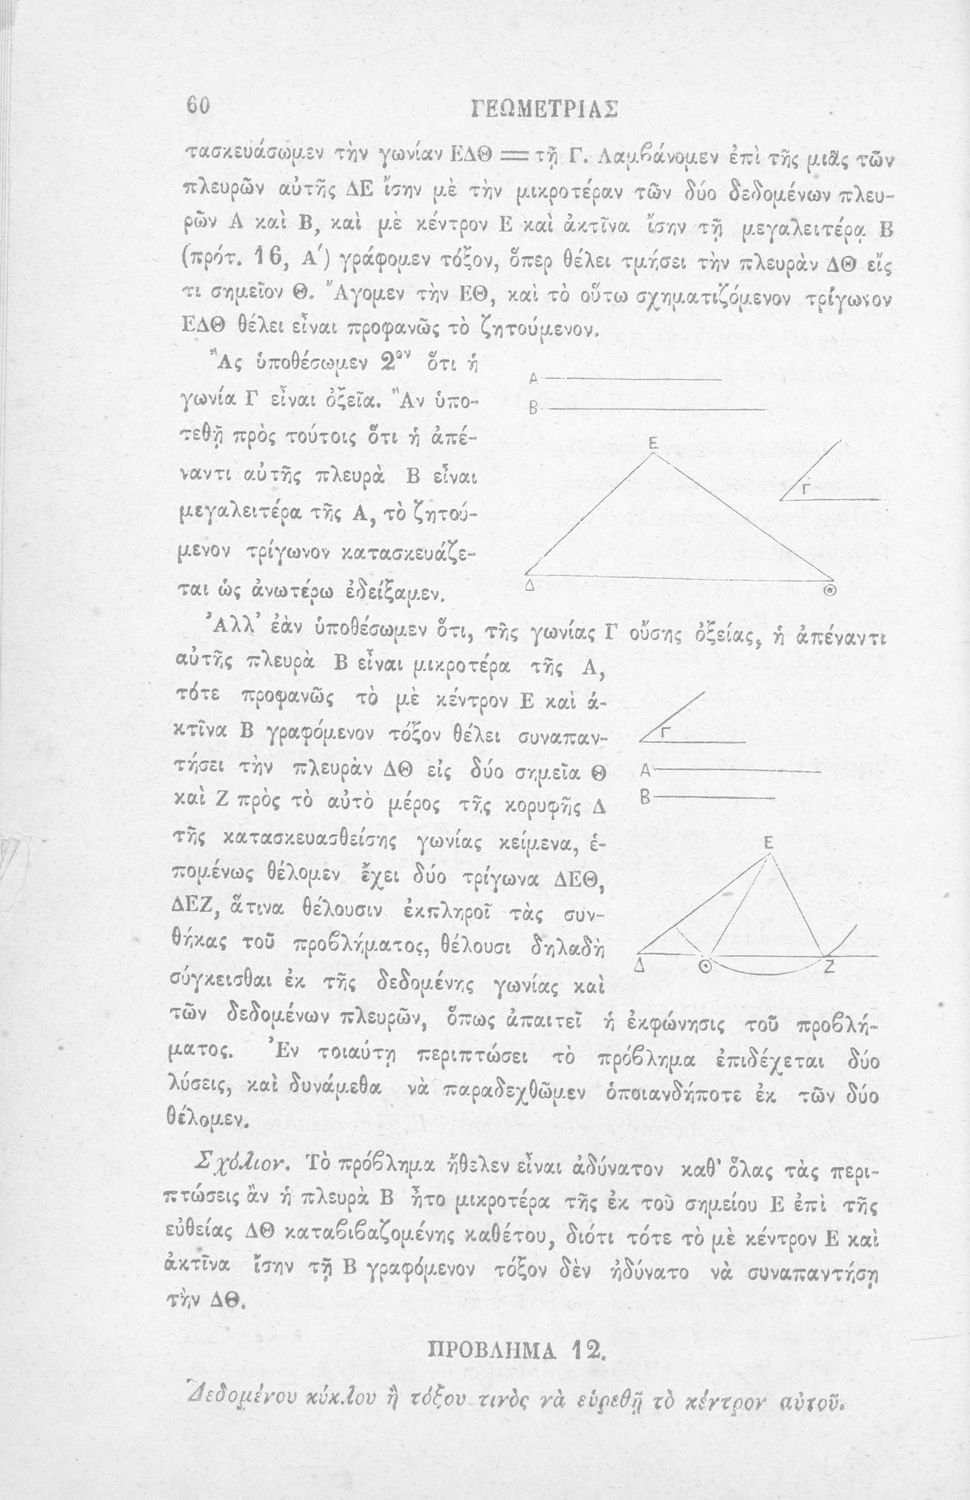 60 ΓΕΩΜΕΤΡΙΑΣ
τασκευάσωμεν τὴν γωνίαν ΕΔΘ = τῇ Γ. Λαμβάνομεν ἐπὶ τῆς μιᾶς τῶν
πλευρῶν αὐτῆς ΔΕ ἴσην μὲ τὴν μικροτέραν τῶν δύο δεδομένων πλευ-
ρῶν Α καὶ Β, καὶ μὲ κέντρον Ε καὶ ἀκτῖνα ἴσην τῇ μεγαλειτέρᾳ Β
(πρότ. 16, Α΄) γράφομεν τόξον, ὅπερ θέλει τμήσει τὴν πλευρὰν ΔΘ εἴς
τι σημεῖον Θ. Ἄγομεν τὴν ΕΘ, καὶ τὸ οὕτω σχηματιζόμενον τρίγωνον
ΕΔΘ θέλει εἶναι προφανῶς τὸ ζητούμενον.
Ἂς ὑποθέσωμεν 2ον ὅτι ἡ
γωνία Γ εἶναι ὀξεῖα. Ἂν ὑπο-
τεθῇ πρὸς τούτοις ὅτι ἡ ἀπέ-
ναντι αὐτῆς πλευρὰ Β εἶναι
μεγαλειτέρα τῆς Α, τὸ ζητού-
μενον τρίγωνον κατασκευάζε-
ται ὡς ἀνωτέρω ἐδείξαμεν.
Α
Β
Ε
Γ
Δ
Θ
Ἀλλ' ἐὰν ὑποθέσωμεν ὅτι, τῆς γωνίας Γ οὔσης ὀξείας, ἡ ἀπέναντι
αὐτῆς πλευρὰ Β εἶναι μικροτέρα τῆς Α,
τότε προφανῶς τὸ μὲ κέντρον Ε καὶ ἀ-
κτῖνα Β γραφόμενον τόξον θέλει συναπαν-
τήσει τὴν πλευρὰν ΔΘ εἰς δύο σημεῖα Θ
καὶ Ζ πρὸς τὸ αὐτὸ μέρος τῆς κορυφῆς Δ
τῆς κατασκευασθείσης γωνίας κείμενα, ἑ-
πομένως θέλομεν ἔχει δύο τρίγωνα ΔΕΘ,
ΔΕΖ, ἅτινα θέλουσιν ἐκπληροῖ τὰς συν-
θήκας τοῦ προβλήματος, θέλουσι δηλαδὴ
σύγκεισθαι ἐκ τῆς δεδομένης γωνίας καὶ
Γ
Α
Β
Ε
Δ
Θ
Ζ
τῶν δεδομένων πλευρῶν, ὅπως ἀπαιτεῖ ἡ ἐκφώνησις τοῦ προβλή-
ματος. Ἐν τοιαύτῃ περιπτώσει τὸ πρόβλημα ἐπιδέχεται δύο
λύσεις, καὶ δυνάμεθα νὰ παραδεχθῶμεν ὁποιανδήποτε ἐκ τῶν δύο
θέλομεν.
Σχόλιον. Τὸ πρόβλημα ἤθελεν εἶναι ἀδύνατον καθ' ὅλας τὰς περι-
πτώσεις ἂν ἡ πλευρὰ Β ἦτο μικροτέρα τῆς ἐκ τοῦ σημείου Ε ἐπὶ τῆς
εὐθείας ΔΘ καταβιβαζομένης καθέτου, διότι τότε τὸ μὲ κέντρον Ε καὶ
ἀκτῖνα ἴσην τῇ Β γραφόμενον τόξον δὲν ἠδύνατο νὰ συναπαντήσῃ
τὴν ΔΘ.
ΠΡΟΒΛΗΜΑ 12.
Δεδομένου κύκλου ἢ τόξου τινὸς νὰ εὑρεθῇ τὸ κέντρον αὐτοῦ.